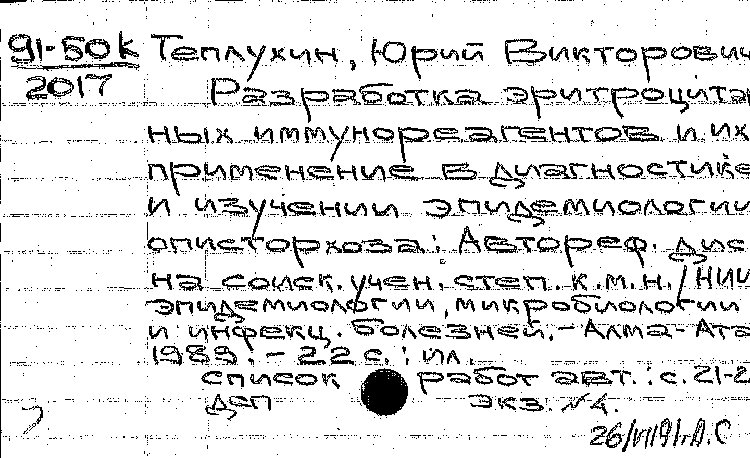 91-50к Теплухин, Юрий Викторович
2017 Разработка эритроцитар
ных иммунореагентов и их
применение в диагностике
и изучении эпидемиологии
описторхоза: Автореф. дис
на соиск. учен. степ. к.м.н. / НИИ
эпидемиологии, микробиологии
и инфекц. болезней. - Алма-Ата
1989. - 22 с. : ил.
список работ авт.: с. 21-2
деп экз. №4.
26/VII91г.